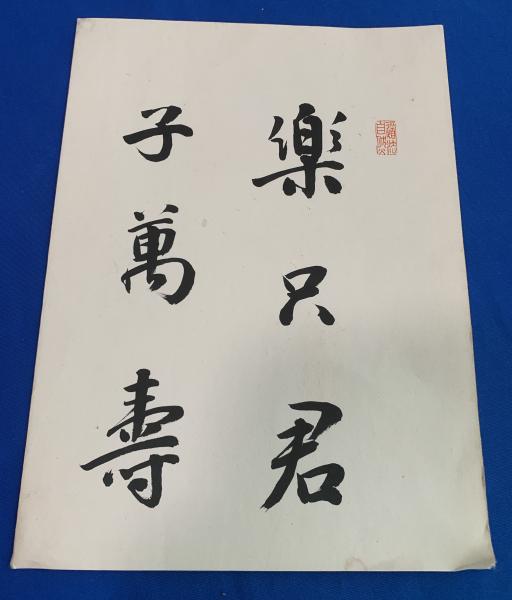 樂只君
子萬壽